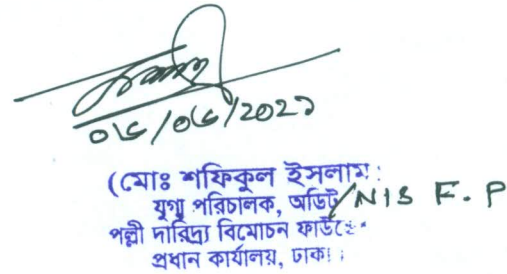 ০৬/০৬/2021
(মোঃ শফিকুল ইসলাম)
যুগ্ম পরিচালক, অডিট/NIS F.P
পল্লী দারিদ্র্য বিমোচন ফাউন্ডেশন
প্রধান কার্যালয়, ঢাকা।